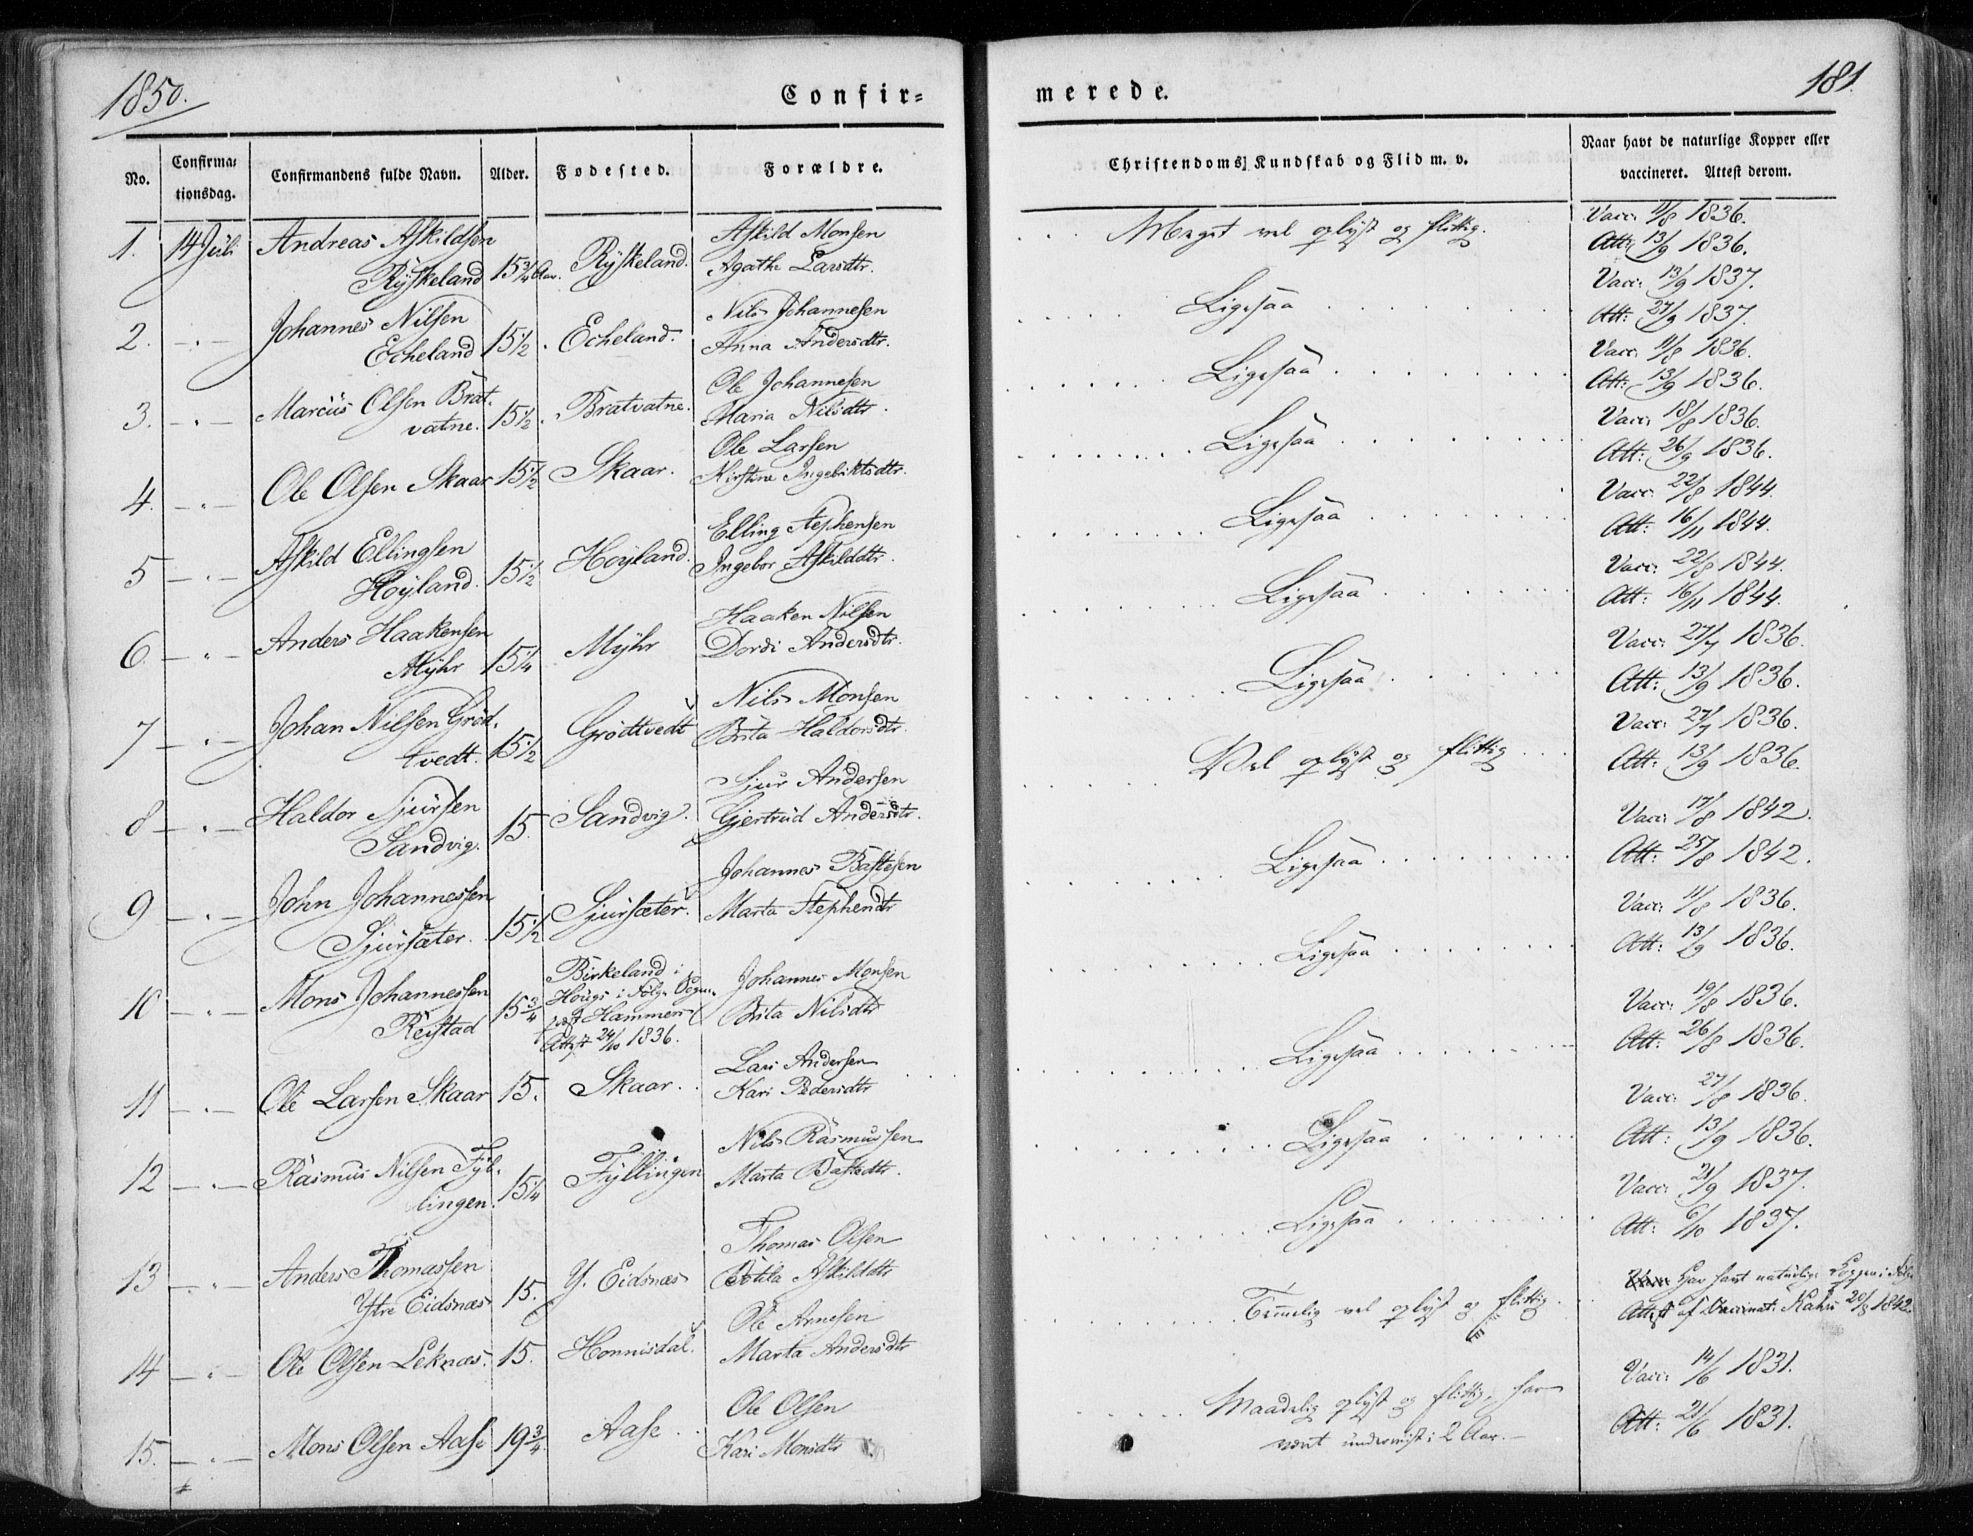 1850.
Confir=
merede.
181.
No.
Confirma=
tionsdag.
Confirmandens fulde Navn.
Alder.
Fødested.
Forældre.
Christendoms Kundskab og Flid m. v.
Naar havt de naturlige Kopper eller
vaccineret. Attest derom.
1. 14 Juli Andreas Askildsen
Ryskeland 15 3/4 Aar. Ryskeland. Askild Monsen
Agathe Larsdtr.
Meget vel oplyst og flittig.
Vacc: 11/8 1836.
Att: 13/9 1836.
2. Johannes Nilsen
Echeland 15 1/2. Echeland. Nils Johannesen
Anna Andersdtr.
Ligesaa
Vacc: 13/9 1837.
Att: 27/9 1837.
3. Marcus Olsen Brat-
vatne. 15 1/2. Bratvatne. Ole Johannesen
Maria Nilsdtr.
Ligesaa
Vacc: 11/8 1836.
Att: 13/9 1836.
4. Ole Olsen Skaar 15 1/2 Skaar. Ole Larsen
Kirstene Ingebrigtsdtr.
Ligesaa
Vacc: 18/8 1836.
Att: 26/9 1836.
5 Askild Ellingsen
Høyland. 15 1/2 Høyland. Elling Stephensen
Ingebor Askildsdtr.
Ligesaa
Vacc: 22/8 1844.
Att: 16/11 1844.
6. Anders Haakensen
Myhr 15 1/4 Myhr Haaken Nilsen
Dordi Andersdtr.
Ligesaa
Vacc: 22/8 1844.
Att: 16/11 1844.
7 Johan Nilsen Grød-
tvedt. 15 1/2 Grødtvedt Nils Monsen
Brita Haldorsdtr.
Ligesaa
Vacc: 27/7 1836.
Att: 13/9 1836.
8 Haldor Sjursen
Sandvig. 15. Sandvig. Sjur Andersen
Gjertrud Andersdtr.
Vel oplyst og flittig
Vacc: 27/7 1836.
Att: 13/9 1836.
9 John Johannessen
Sjursæter. 15 1/2 Sjursæter. Johannes Bastesen
Marta Stephensdtr
Ligesaa
Vacc: 17/8 1842.
Att: 25/8 1842.
10 Mons Johannessen
Reistad 15 3/4 Birkeland i
Hougs i Følge Sogne-
præst Hammers
Attest 24/10 1836.
Johannes Monsen
Brita Nilsdtr
Ligesaa
Vacc: 11/8 1836.
Att: 13/9 1836.
11 Ole Larsen Skaar 15. Skaar. Lars Andersen
Kari Pedersdtr
Ligesaa
Vacc: 19/8 1836.
Att: 26/8 1836.
12 Rasmus Nilsen Fyl-
lingen. 15 1/4 Fyllingen Nils Rasmussen
Marta Bastedtr.
Ligesaa
Vacc: 27/8 1836.
Att: 13/9 1836.
13 Anders Thomassen
Ytre Eidsnæs 15. Y. Eidsnæs Thomas Olsen
Botila Askildsdtr
Ligesaa
Vacc: 21/9 1837.
Att: 6/10 1837.
14 Ole Olsen Leknæs. 15. Honnisdal. Ole Arnesen
Marta Andersdtr
Temmelig vel oplyst og flittig.
Har havt naturlige Kopper i
Attest af Vaccinat: 20/8 1842.
15. Mons Olsen Aase 19 3/4. Aase. Ole Olsen
Kari Monsdtr
Maadelig oplyst og flittig, har
været underviist i 2 Aar.
Vacc: 14/6 1831.
Att: 21/6 1831.